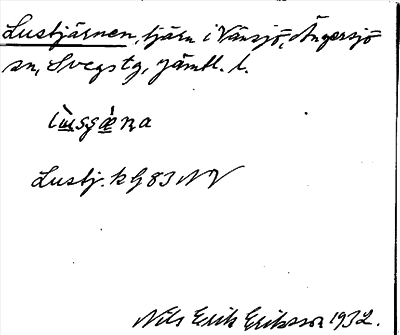 Lustjärnen, tjärn i Vänsjö, Ängersjö
sn, Svegs tg, Jämtl. l.
Lustj. k G 83 NV
Nils Erik Eriksson 1932.